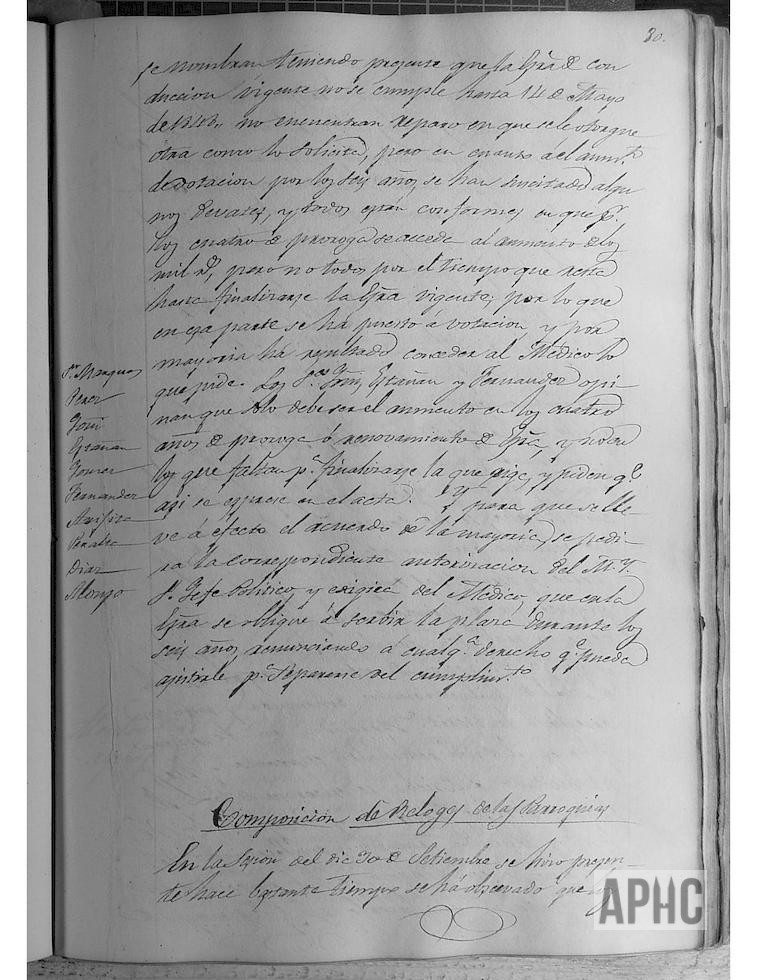 80.
se nombran teniendo presente que la Esra de con
duccion vigente no se cumple hasta 14 de Mayo
de 1848, no encuentran reparo en que se le otorgue
otra como lo solicita, pero en cuanto á el aumto
de dotacion por los seis años, se han suscitado algu
nos devates, y todos están conformes en que pr.
los cuatro de proroga se acceda al aumento de los
mil rs, pero no todos por el tiempo que resta
hasta finalizarse la Esra vigente; por lo que
en esa parte se há puesto á votacion, y por
mayoria há resultado conceder al Medico lo
que pide. Los Sres Goñi, Estañan y Fernandez opi
nan que solo debe ser el aumento en los cuatro
años de proroga ó renovamiento de Esra, y no en
los que faltan pa. finalizarse la que rige, y piden qe
asi se esprese en el acta. Y para que se lle
ve á efecto el acuerdo de la mayoria, se pedi
ra la correspondiente autorizacion del M. Y.
Sr. Jefe Politico, y exigirá del Medico, que en la
Esra se oblique á servir la plaza durante los
seis años renunciando á cualqa. derecho qe. pueda
asistirle pa. separarse del cumplimto
Sr. Marques
Perez
Goñi
Estañan
Gomez
Fernandez
Peralta
Diaz
Alonso
Composicion de Reloges de las Parroquias
En la Sesion del dia 30 de Setiembre se hizo presen
te hace bastante tiempo se há observado que
APHC